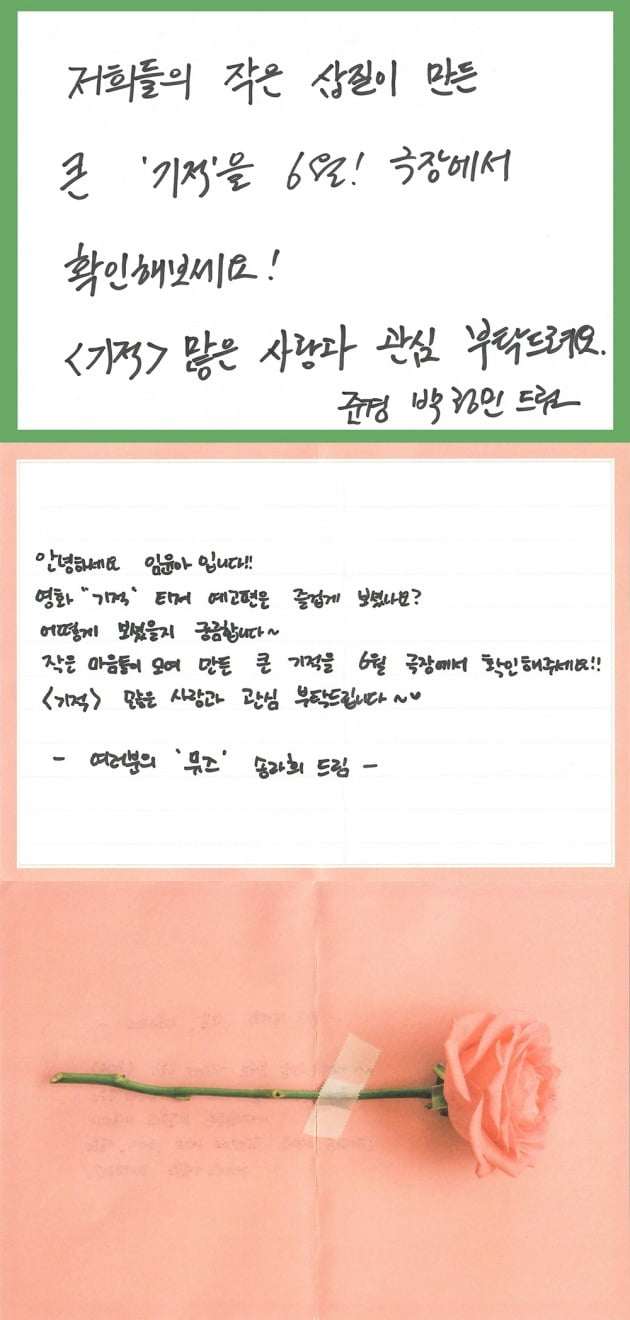 저희들의 작은 삽질이 만든
큰 '기적'을 6월! 극장에서
확인해보세요!
<기적> 많은 사랑과 관심 부탁드려요.
준경 박정민 드림
안녕하세요 임윤아입니다!!
영화 "기적" 티저 예고편은 즐겁게 보셨나요?
어떻게 보셨을지 궁금합니다~
작은 마음들이 모여 만든 큰 기적을 6월 극장에서 확인해주세요!!
<기적> 많은 사랑과 관심 부탁드립니다~♥
- 여러분의 '뮤즈' 송라희 드림 -